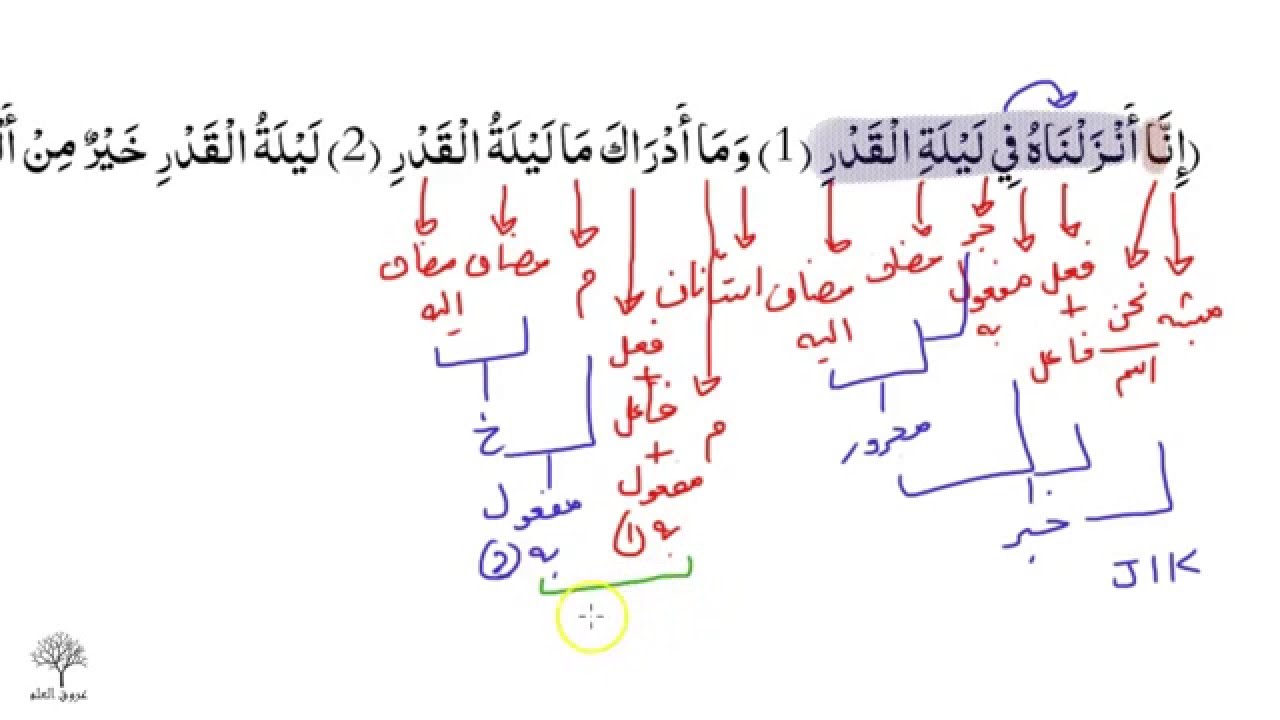 (إِنَّا أَنْزَلْنَاهُ فِي لَيْلَةِ الْقَدْرِ (1) وَمَا أَدْرَاكَ مَا لَيْلَةُ الْقَدْرِ (2) لَيْلَةُ الْقَدْرِ خَيْرٌ مِنْ
مشبه
نحن
اسم
فعل
+
فاعل
مفعول
به
جر
مضاف
مضاف
اليه
مجرور
خبر
JIK
م
فعل
+
فاعل
+
مفعول
به ①
م
مضاف
مضاف
اليه
خ
مفعول
به ②
عروق العلم